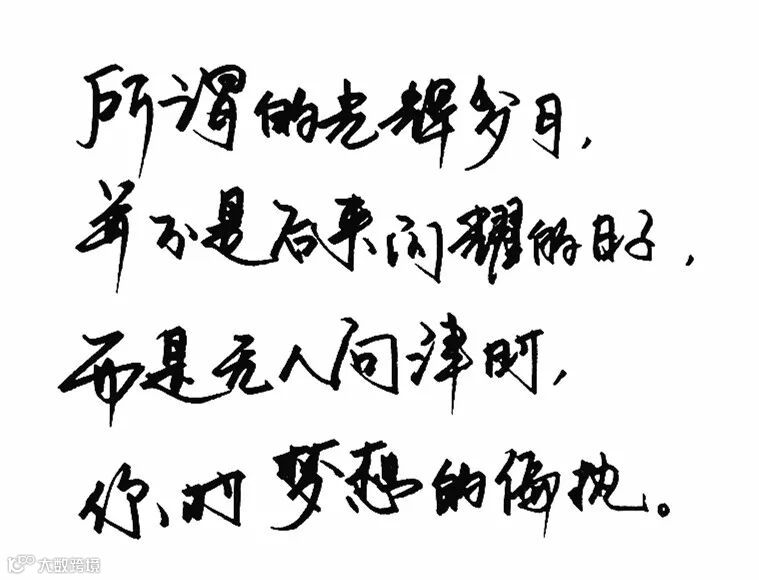 所谓的光辉岁月，
并不是后来闪耀的日子，
而是无人问津时，
你对梦想的偏执。
大数跨境